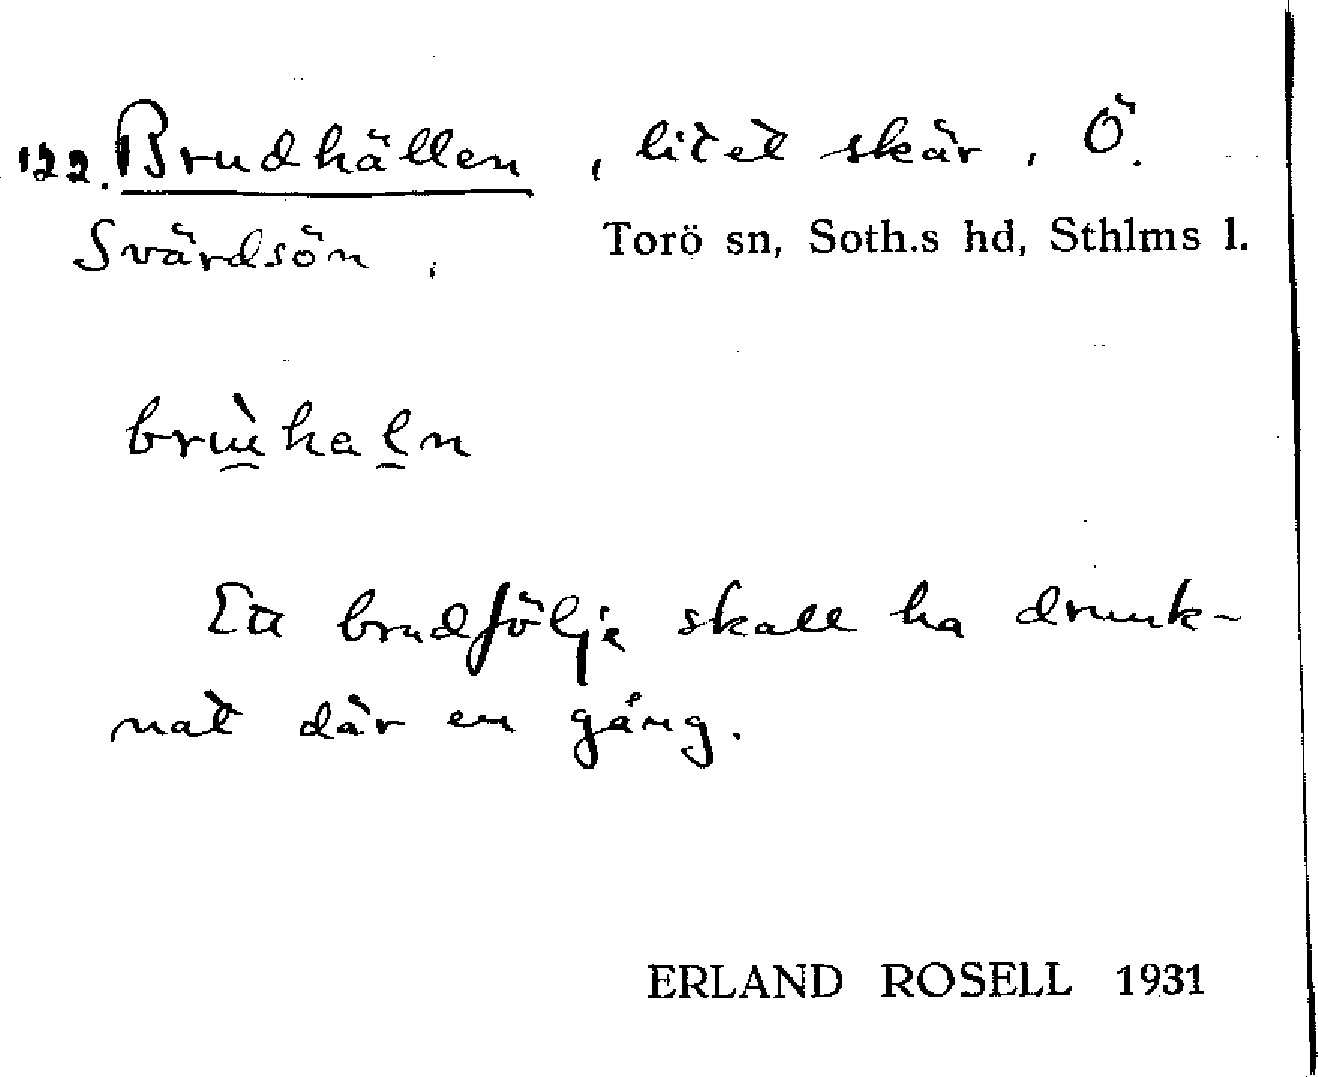 122. Brudhällen, litet skär, Ö.
Svärdsön, Torö sn, Soth.s hd, Sthlms l.
brɯ̀haln
Ett brudfölje skall ha drunk-
nat där en gång.
ERLAND ROSELL 1931